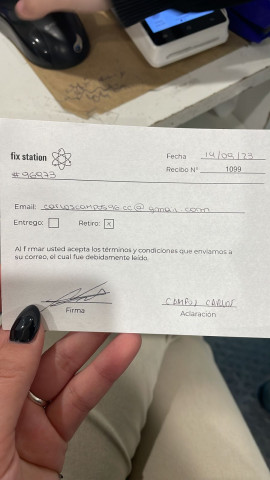 fix station
Fecha 14/09/23
Recibo N° 1099
#96973
Email: carloscampos96.cc@gmail.com
Entrego: Retiro: x
Al firmar usted acepta los términos y condiciones que enviamos a
su correo, el cual fue debidamente leído.
CAMPOS CARLOS
Firma Aclaración